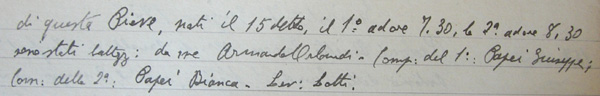 di questa Pieve, nati il 15 detto, il 1º ad ore 7.30, la 2ª ad ore 8,30
sono stati battezz: da me Armando Orlandi - Comp: del 1º: Papei Giuseppe;
Com: della 2ª: Papei Bianca - Lev: Lotti.